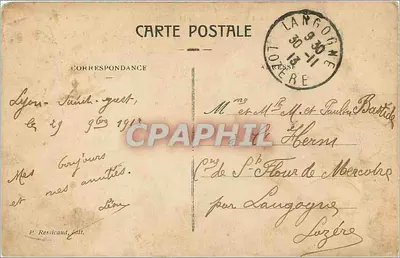 CARTE POSTALE
CORRESPONDANCE
LANGOGNE
9 30
30 -11
13
LOZERE
Lyon-Saint-Just,
le 29 9bre 1913
Mes
et mes amitiés.
Léon
CPAPHIL
Mme et Mr M. et Paulin Bastide
St Herm
Cne de St Flour de Mercoire
par Langogne
Lozère